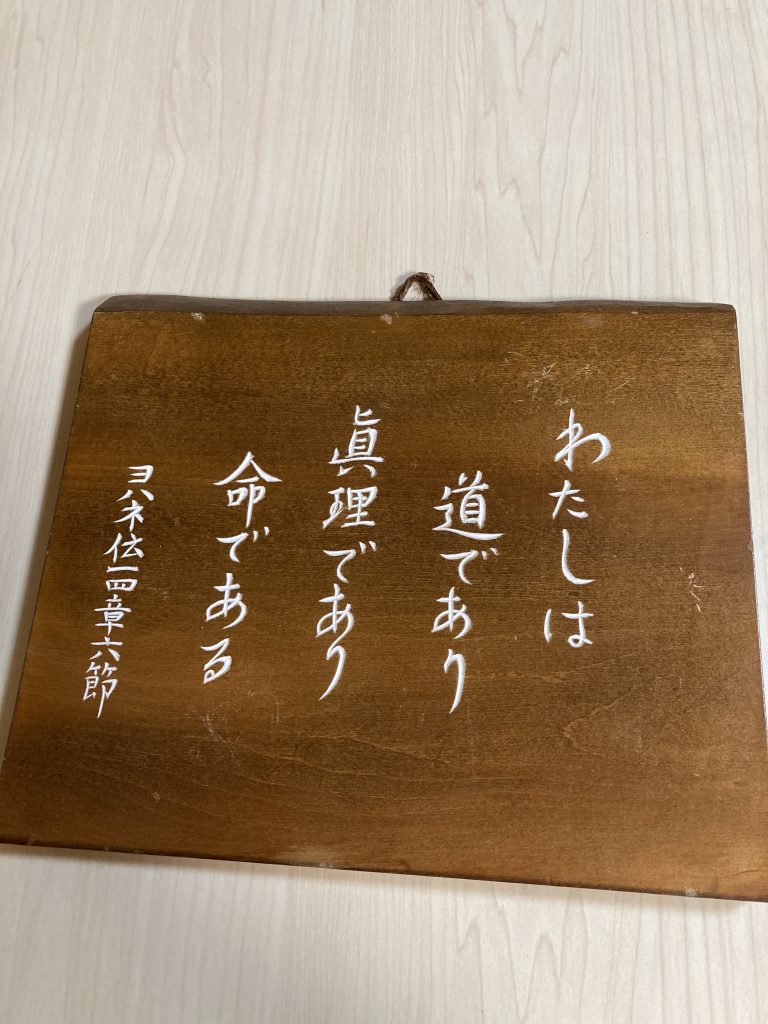 わたしは
道であり
眞理であり
命である
ヨハネ伝一四章六節